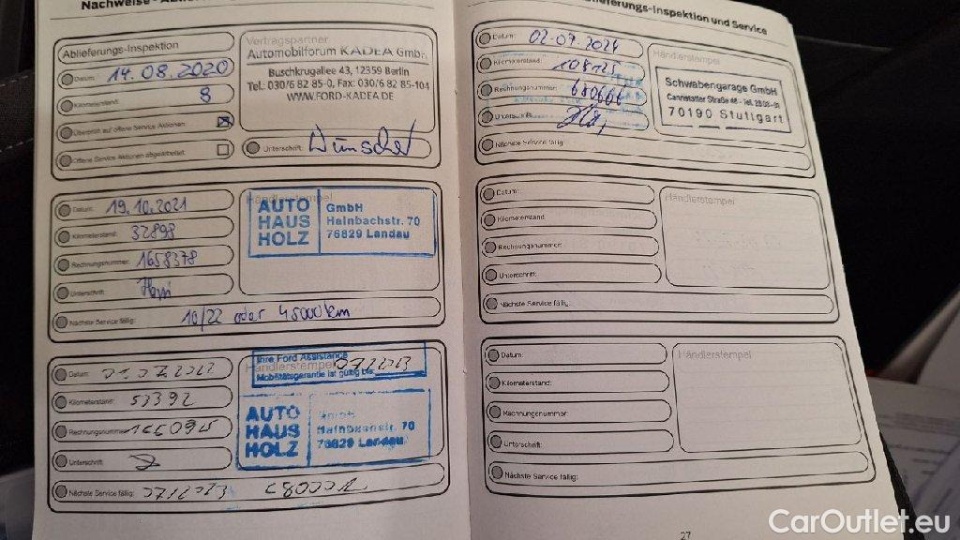 Ablieferungs-Inspektion und Service
Ablieferungs-Inspektion
Datum: 14.08.2020
Kilometerstand: 8
Überprüft auf offene Service Aktionen:
Offene Service Aktionen abgearbeitet:
Vertragspartner
Automobilforum KADEA GmbH
Buschkrugallee 43, 12359 Berlin
Tel. 030/6 82 85-0, Fax: 030/6 82 85-104
WWW.FORD-KADEA.DE
Unterschrift: Wünscher
Datum: 19.10.2021
Kilometerstand: 32898
Rechnungsnummer: 1658378
Unterschrift:
Nächste Service fällig: 10/22 oder 45000km
AUTO HAUS HOLZ
GmbH
Hainbachstr. 70
76829 Landau
Datum:
Kilometerstand: 53392
Rechnungsnummer:
Unterschrift:
Nächste Service fällig: 07/2023
Ihre Ford Assistance
Mobilitätsgarantie ist gültig bis 07/2023
Händlerstempel
AUTO HAUS HOLZ
GmbH
Hainbachstr. 70
76829 Landau
Datum: 02-09-2024
Kilometerstand: 108125
Rechnungsnummer: 680666
Unterschrift:
Nächste Service fällig:
Händlerstempel
Schwabengarage GmbH
70190 Stuttgart
Datum:
Kilometerstand:
Rechnungsnummer:
Unterschrift:
Nächste Service fällig:
Händlerstempel
Datum:
Kilometerstand:
Rechnungsnummer:
Unterschrift:
Nächste Service fällig:
Händlerstempel
27
CarOutlet.eu